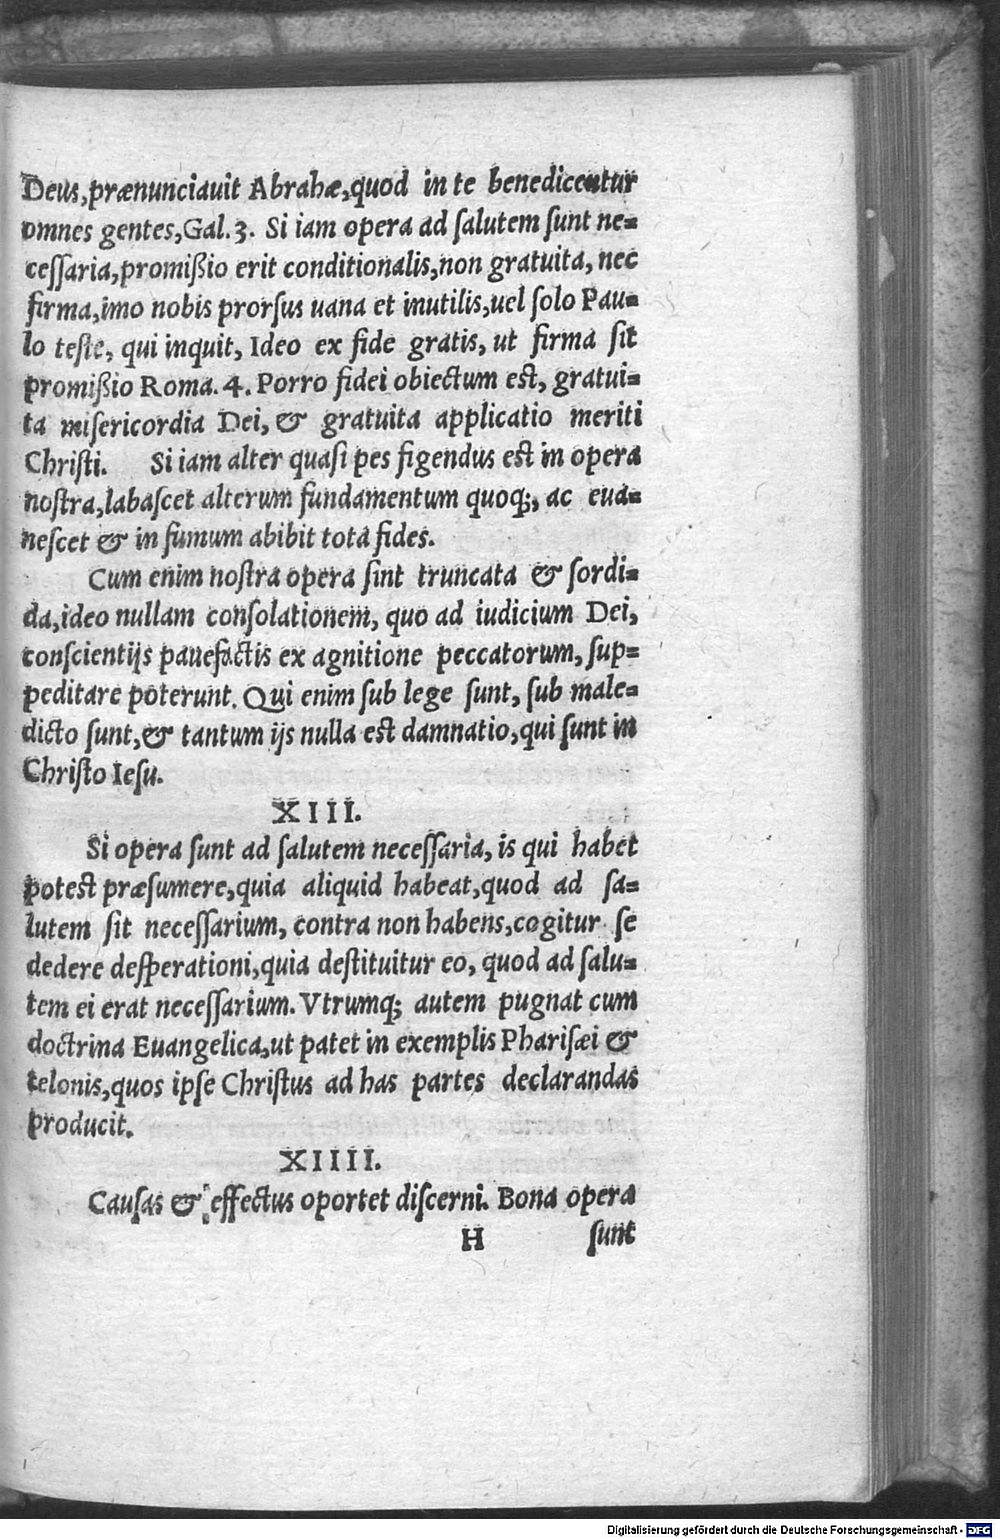 Deus,prænunciauit Abrahæ,quod in te benedicentur
omnes gentes,Gal.3. Si iam opera ad ſalutem ſunt ne=
ceſſaria,promißio erit conditionalis,non gratuita, nec
firma,imo nobis prorſus uana et inutilis,uel ſolo Pau=
lo teſte, qui inquit, Ideo ex fide gratis, ut firma ſit
promißio Roma. 4. Porro fidei obiectum est, gratui=
ta miſericordia Dei, & gratuita applicatio meriti
Chriſti. Si iam alter quaſi pes figendus est in opera
noſtra,labaſcet alterum fundamentum quoq;, ac eua=
neſcet & in fumum abibit tota fides.
Cum enim noſtra opera ſint truncata & ſordi=
da,ideo nullam conſolationem, quo ad iudicium Dei,
conſcientijs pauefactis ex agnitione peccatorum, ſup=
peditare poterunt. Qui enim ſub lege ſunt, ſub male=
dicto ſunt,& tantum ijs nulla est damnatio,qui ſunt in
Chriſto Ieſu.
XIII.
Si opera ſunt ad ſalutem neceſſaria, is qui habet
potest præſumere,quia aliquid habeat,quod ad ſa=
lutem ſit neceſſarium, contra non habens,cogitur ſe
dedere deſperationi,quia deſtituitur eo, quod ad ſalu=
tem ei erat neceſſarium. Vtrumq; autem pugnat cum
doctrina Euangelica,ut patet in exemplis Phariſæi &
telonis,quos ipſe Chriſtus ad has partes declarandas
producit.
XIIII.
Cauſas & effectus oportet diſcerni. Bona opera
H ſunt
Digitalisierung gefördert durch die Deutsche Forschungsgemeinschaft - DFG